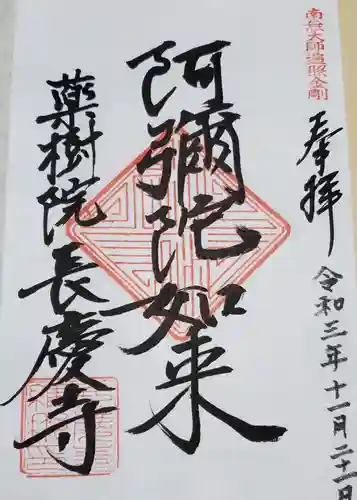 南無大師遍照金剛
奉拝
令和三年十一月二十一日
阿彌陀如来
薬樹院長慶寺